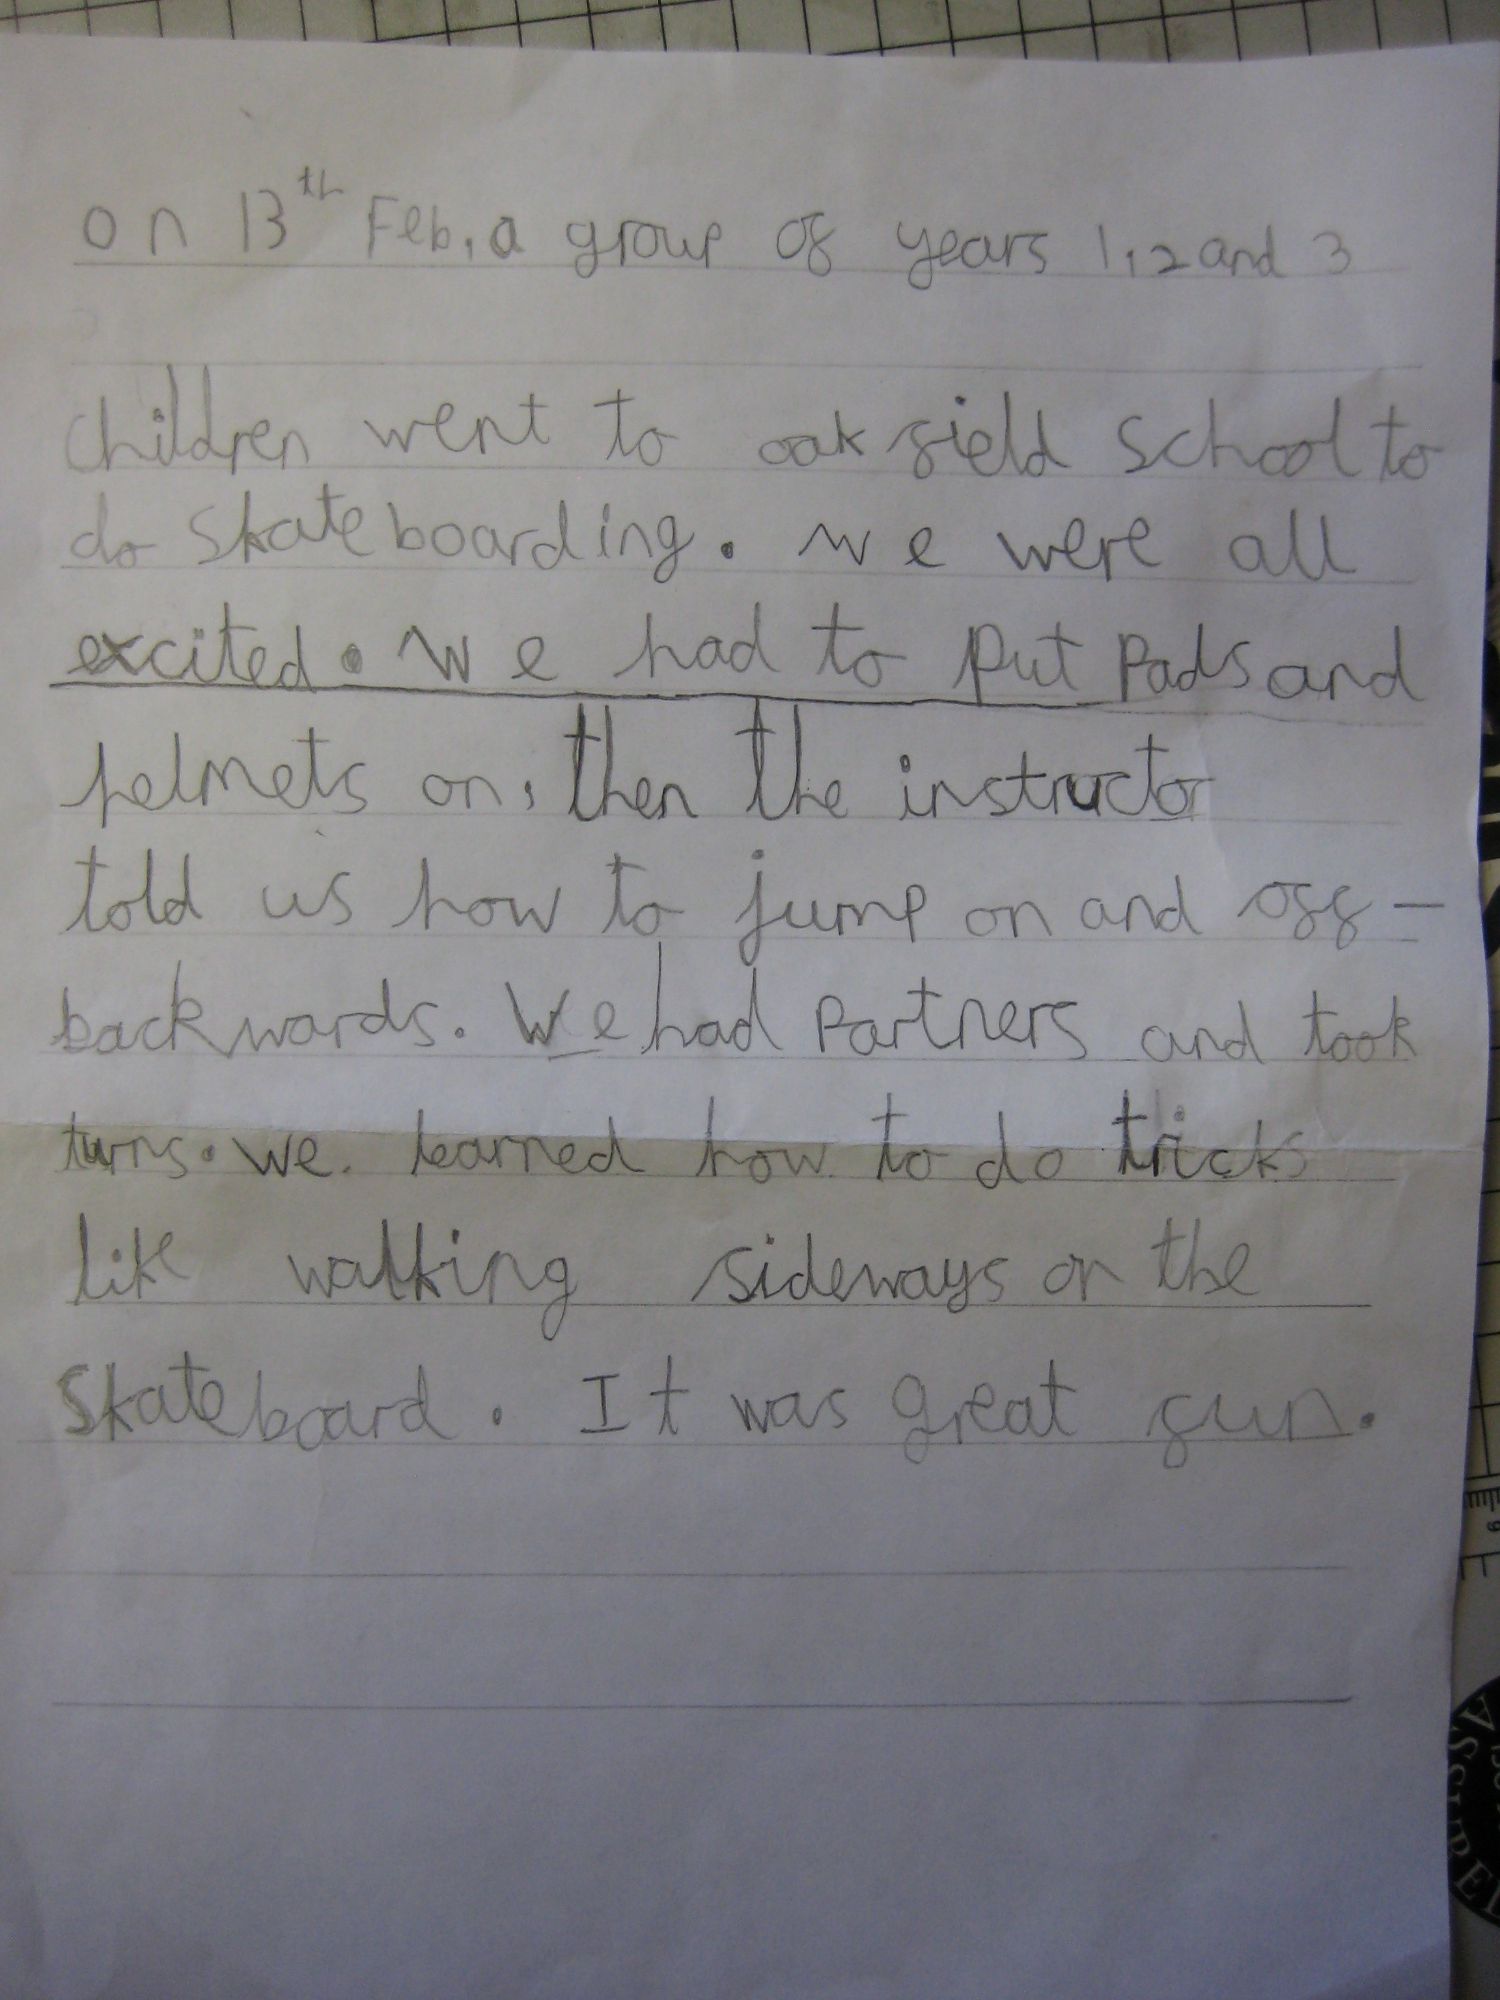 on 13th Feb, a group of years 1,2 and 3
children went to oakfield School to
do skateboarding. We were all
excited. We had to put pads and
helmets on, then the instructor
told us how to jump on and off -
backwards. We had partners and took
turns. We learned how to do tricks
like walking sideways on the
Skateboard. It was great fun.